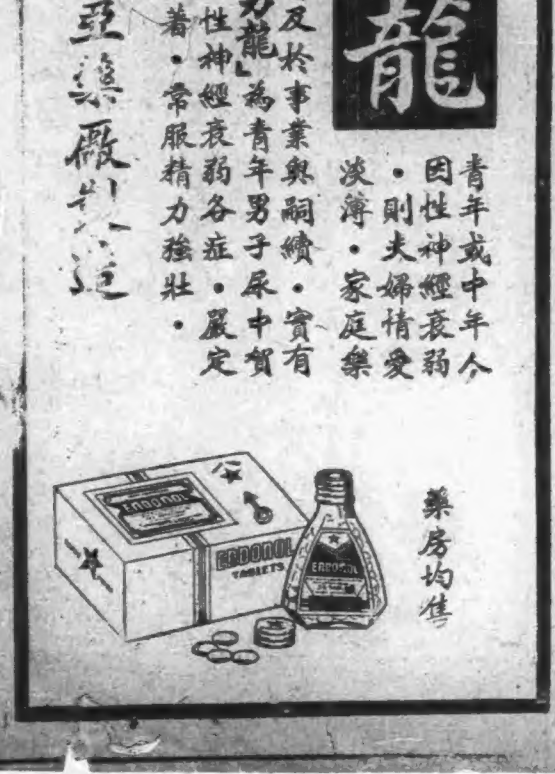 龍
青年或中年人
因性神經衰弱
・則夫婦情愛
淡薄・家庭樂
及於事業與嗣續・實有
力龍」為青年男子尿中賀
性神經衰弱各症・嚴定
著・常服精力強壯・
亞藥廠製造
藥房均售
ERDONOL
ERDONOL
TABLETS
ERDONOL